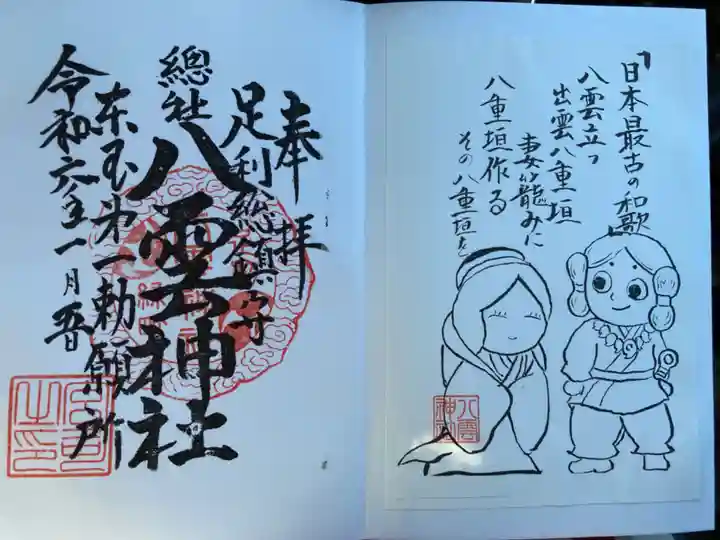 奉拝
足利総鎮守
總社
八雲神社
東国第一勅願所
令和六年一月五日
「日本最古の和歌」
八雲立つ
出雲八重垣
妻籠みに
八重垣作る
その八重垣を
八雲
神社